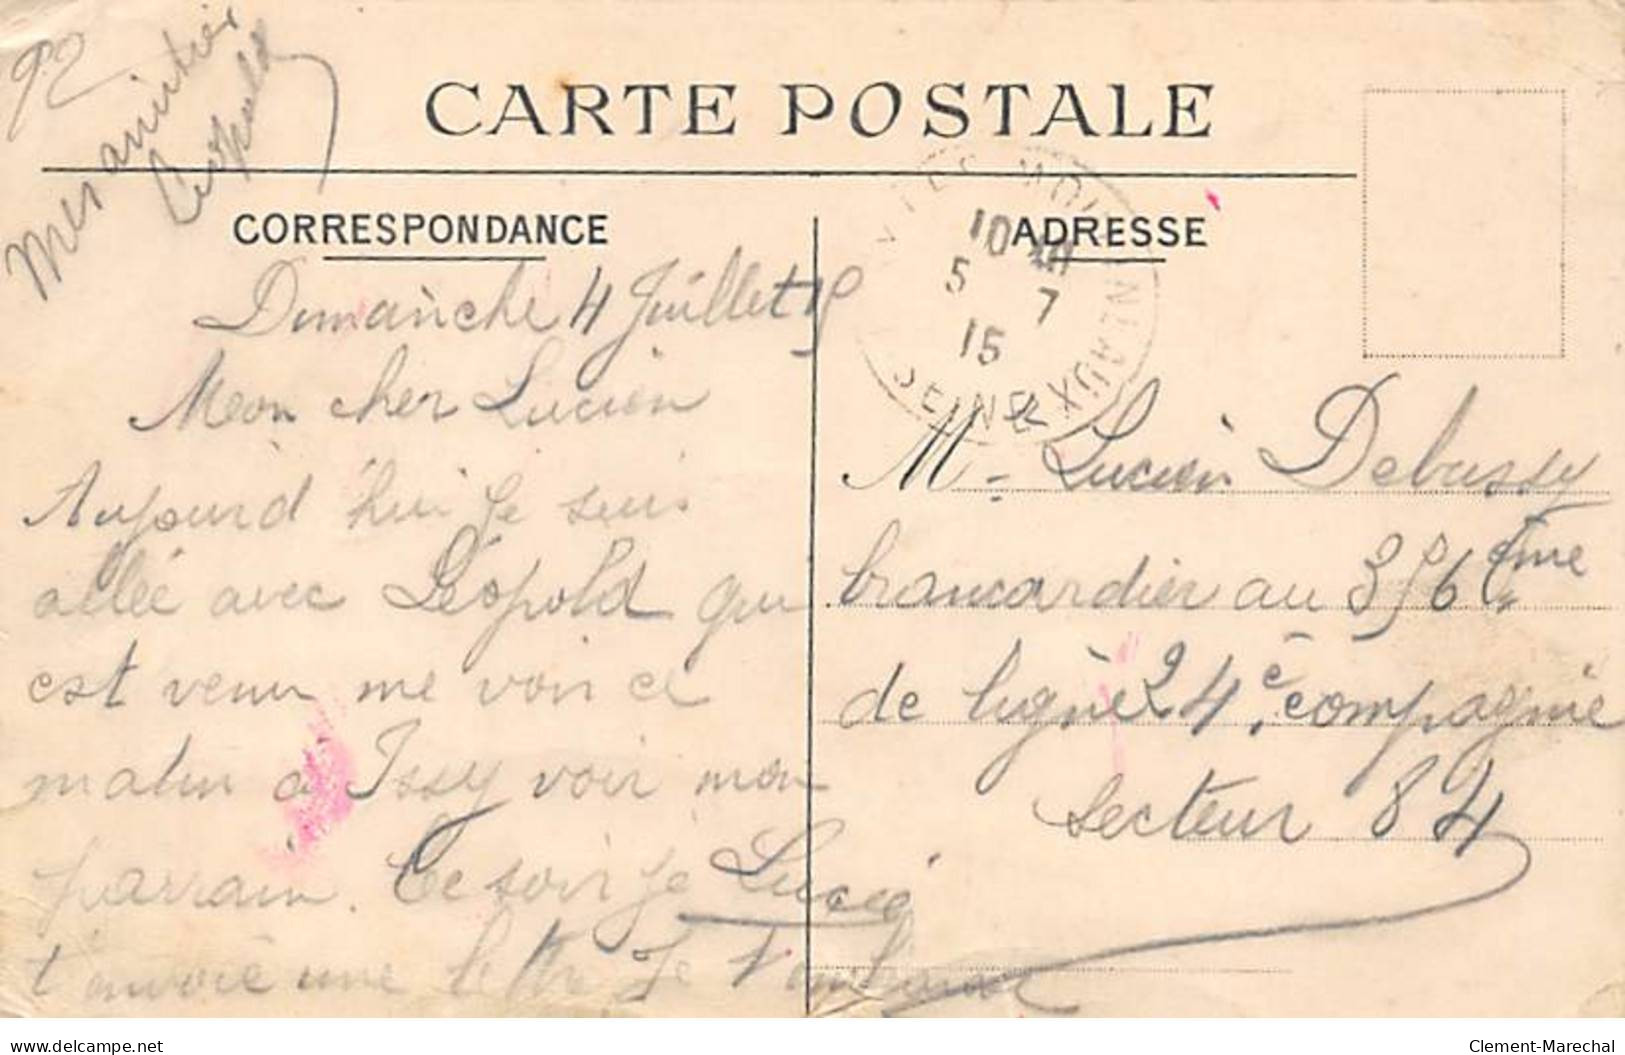 92
Mes amitiés
Léopold
CARTE POSTALE
CORRESPONDANCE
Dimanche 4 Juillet 15
Mon cher Lucien
Aujourd'hui je suis
allée avec Léopold qui
est venu me voir ce
matin à Issy voir mon
parrain. Ce soir je
t'envoie une lettre Je t'embrasse
Lucie
ADRESSE
10
5 7
15
SEINE
Mr Lucien Debussy
brancardier au 356ème
de ligne 24e compagnie
Secteur 84
www.delcampe.net
Clement-Marechal